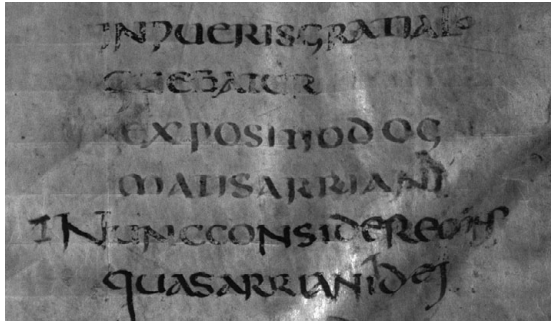 INPUERISGRATIALO
QUEBATUR
EXPOSITIODOG
MATISARRIANI
INUNCCONSIDEREMUS
QUASARRIANIDEI